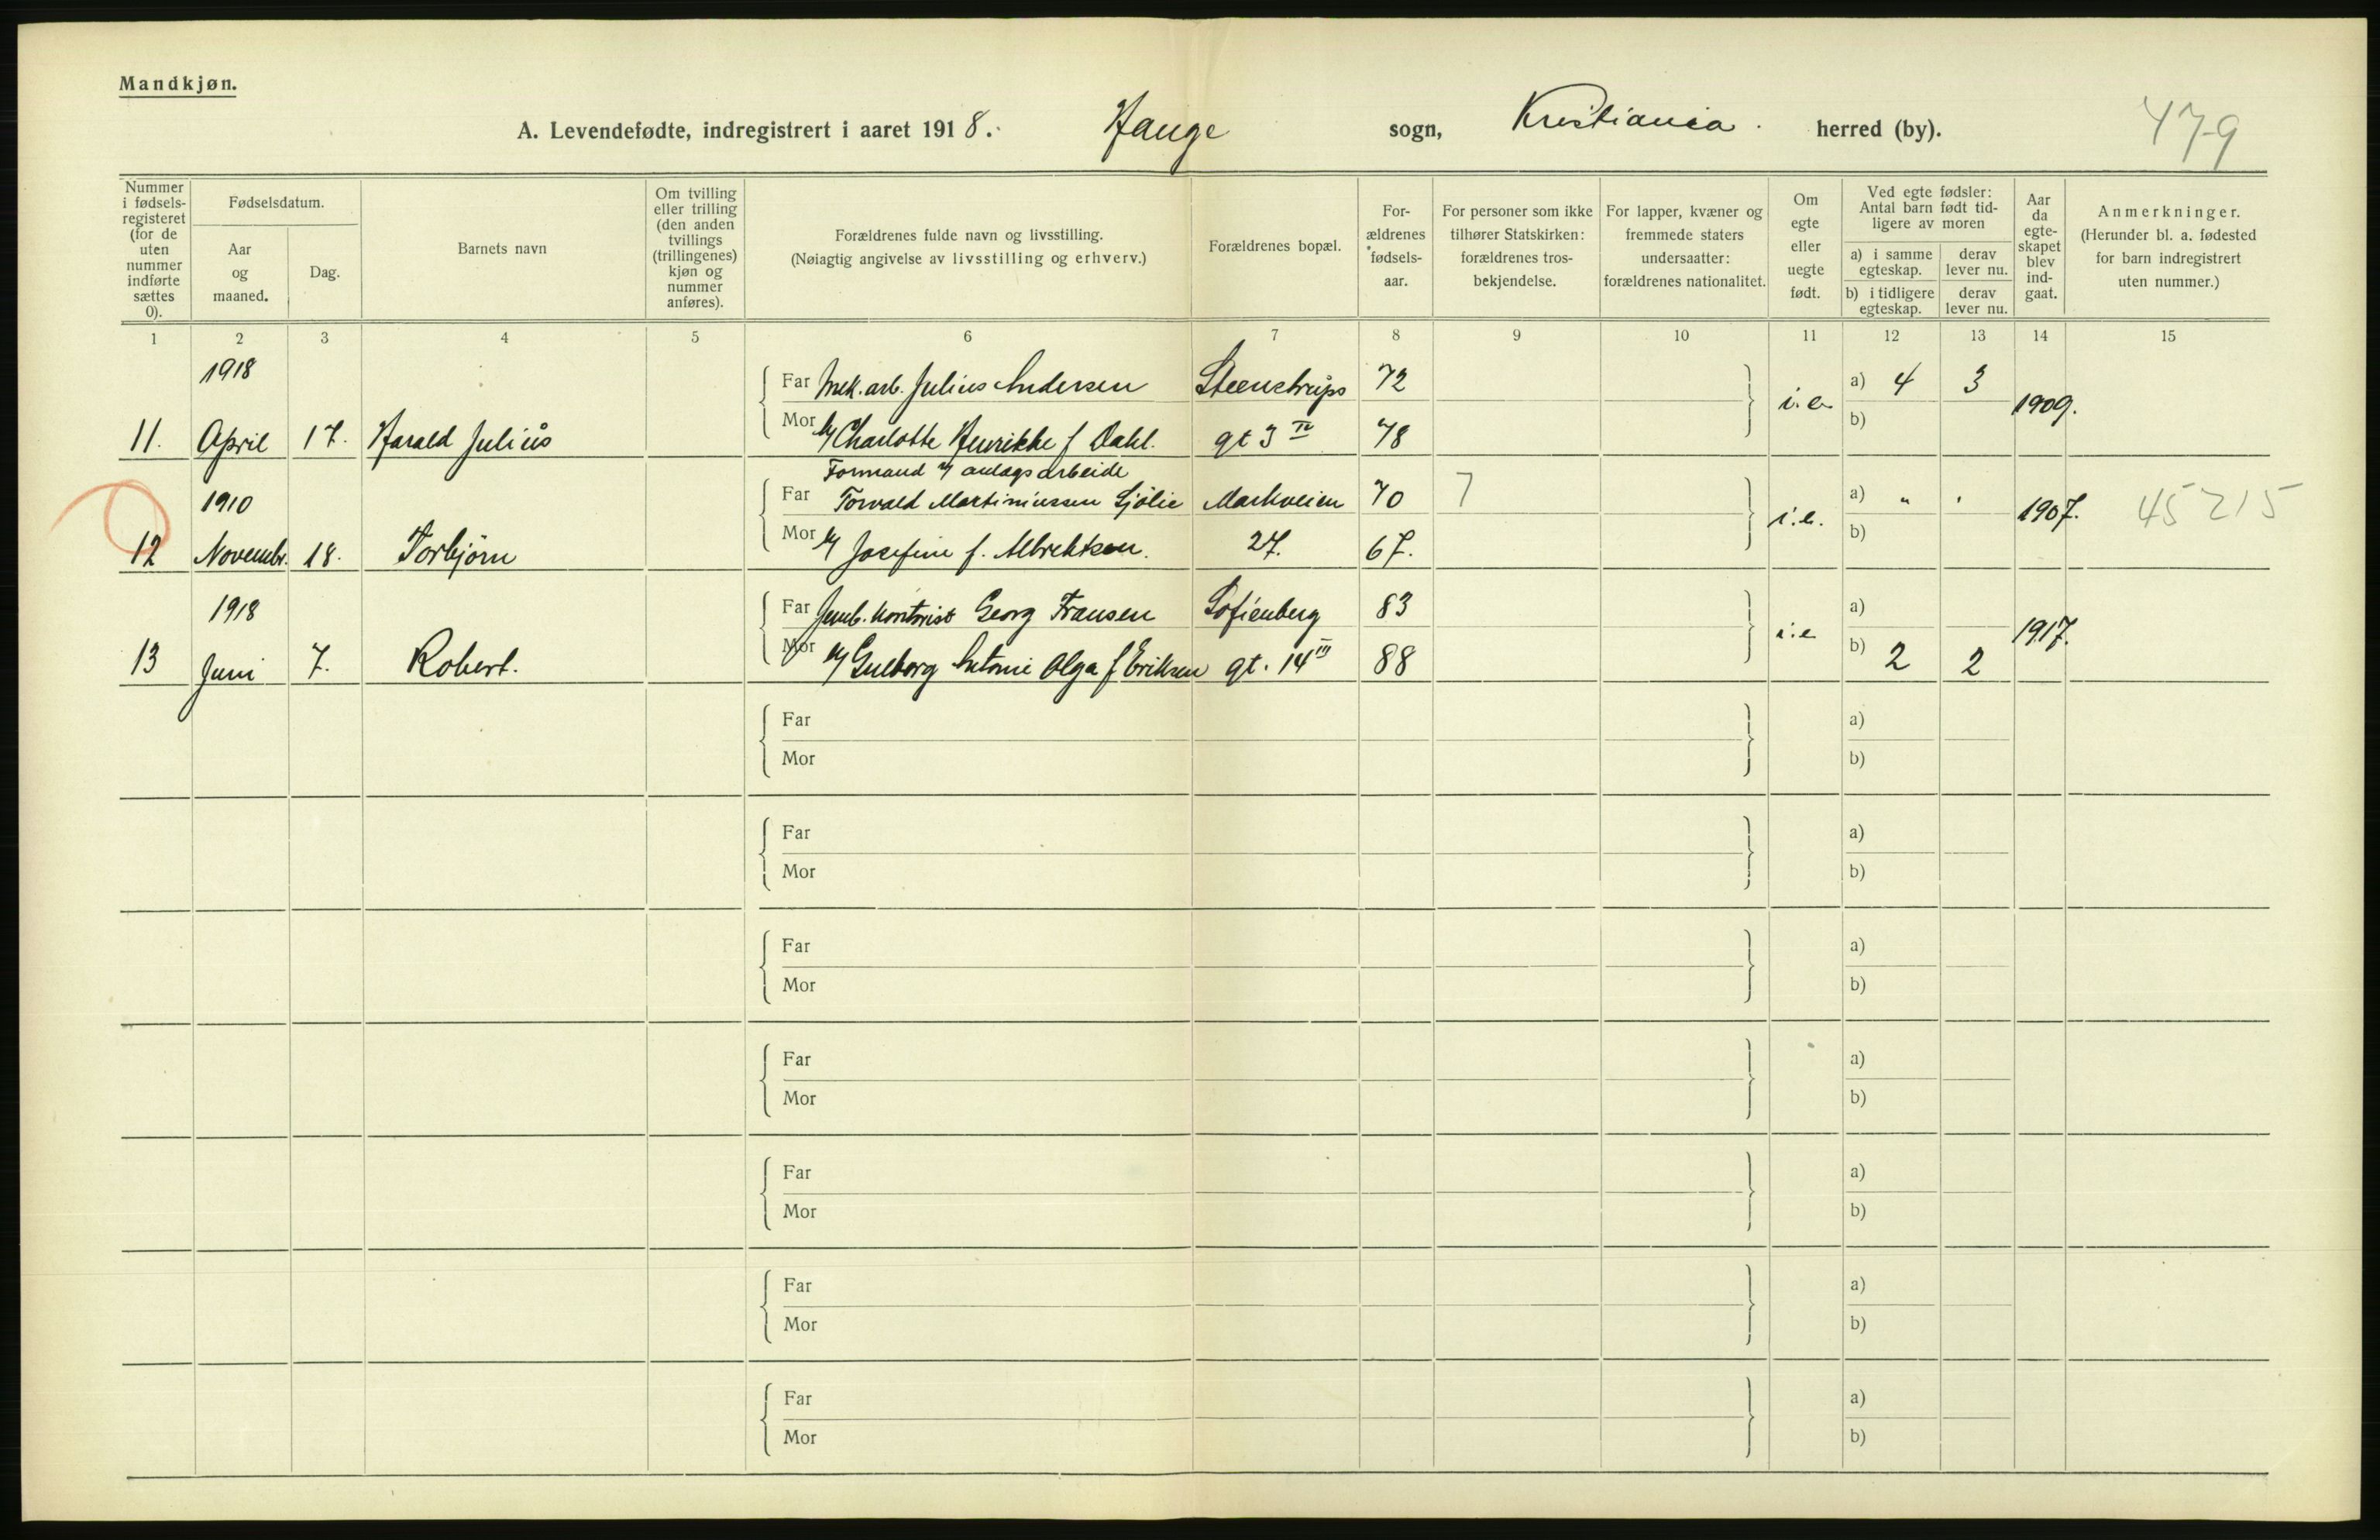 Mandkjøn.
A. Levendefødte, indregistrert i aaret 1918. Hauge sogn, Kristiania. herred (by). 479
Nummer i fødsels-registeret (for de uten nummer indførte sættes 0).
Fødselsdatum.
Aar og maaned.
Dag.
Barnets navn
Om tvilling eller trilling (den anden tvillings (trillingenes) kjøn og nummer anføres).
Forældrenes fulde navn og livsstilling.
(Nøiagtig angivelse av livsstilling og erhverv.)
Forældrenes bopæl.
For-ældrenes fødsels-aar.
For personer som ikke tilhører Statskirken: forældrenes tros-bekjendelse.
For lapper, kvæner og fremmede staters undersaatter: forældrenes nationalitet.
Om egte eller uegte født.
Ved egte fødsler: Antal barn født tid-ligere av moren
a) i samme egteskap.
derav lever nu.
b) i tidligere egteskap.
derav lever nu.
Aar da egte-skapet blev ind-gaat.
Anmerkninger.
(Herunder bl. a. fødested for barn indregistrert uten nummer.)
1 2 3 4 5 6 7 8 9 10 11 12 13 14 15
1918 Far Mek. arb. Julius Andersen Steenstrups 72 i.e. a) 4 3 1909.
11. April 17. Harald Julius Mor Charlotte Henrikke f Dahl. gt 3 IV 78 b)
Formand v/ anlægsarbeide
1910 Far Torvald Martiniussen Sjølie Markveien 70 7 i.e. a) " 1907. 45215
12 Novembr. 18. Torbjørn Mor Josefine f. Albrektsen. 27. 67. b)
1918 Far Jernb. kontorist Georg Fransen Sofienberg 83 i.e a) 1917.
13 Juni 7. Robert. Mor Antonie Olga f Eriksen gt. 14 III 88 b) 2 2
Far a)
Mor b)
Far a)
Mor b)
Far a)
Mor b)
Far a)
Mor b)
Far a)
Mor b)
Far a)
Mor b)
Far a)
Mor b)